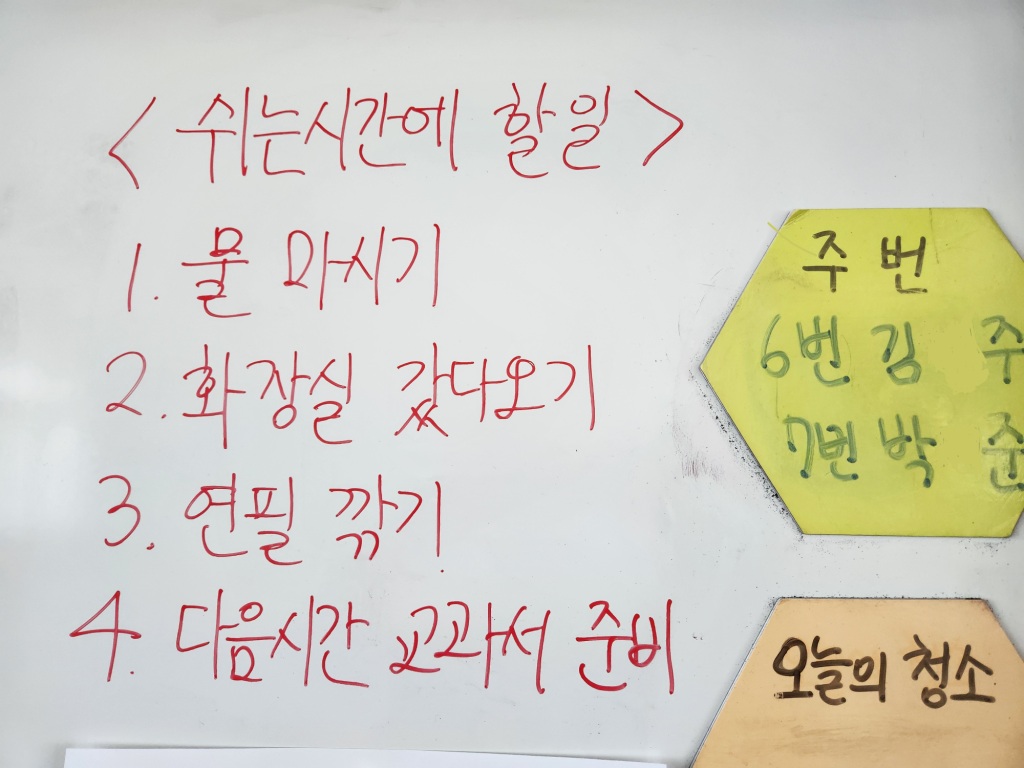 < 쉬는시간에 할일 >
1. 물 마시기
2. 화장실 갔다오기
3. 연필 깎기
4. 다음시간 교과서 준비
주번
6번 김 주
7번 박 준
오늘의 청소